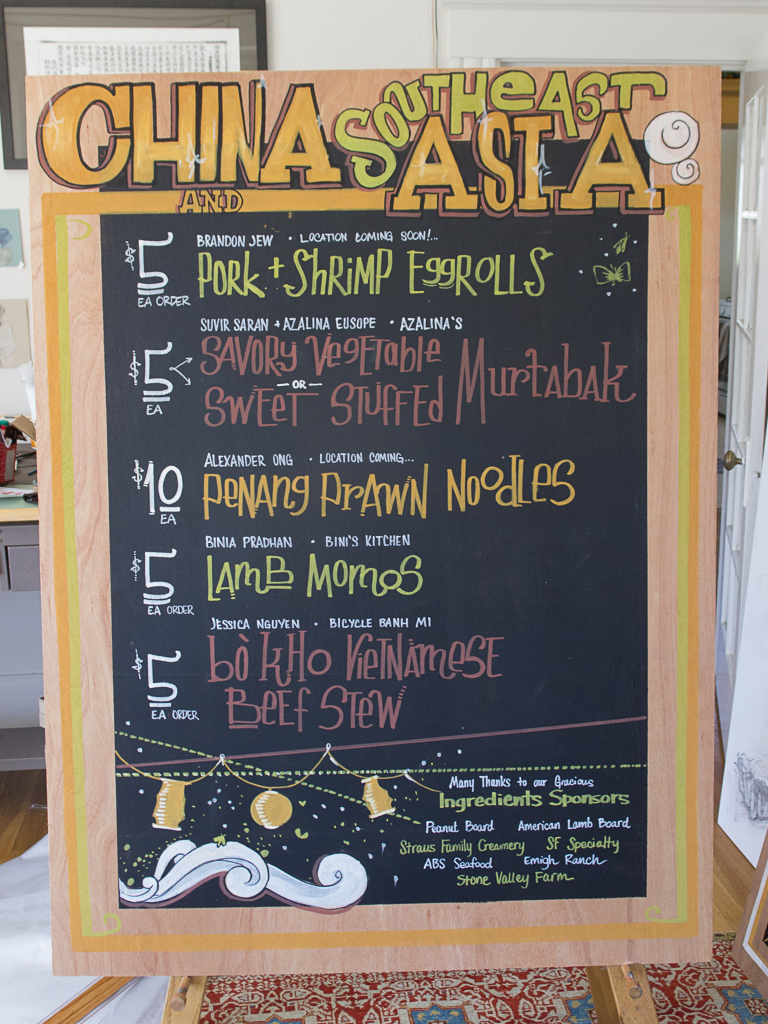 CHINA
AND
SOUTHEAST
ASIA
BRANDON JEW · LOCATION COMING SOON!...
$5 EA ORDER
PORK + SHRIMP EGGROLLS
SUVIR SARAN + AZALINA EUSOPE · AZALINA'S
$5 EA
SAVORY VEGETABLE
- OR -
SWEET STUFFED
MURTABAK
ALEXANDER ONG · LOCATION COMING...
$10 EA
PENANG PRAWN NOODLES
BINIA PRADHAN · BINI'S KITCHEN
$5 EA ORDER
LAMB MOMOS
JESSICA NGUYEN · BICYCLE BANH MI
$5 EA ORDER
bò kHO VIETNAMESE
BEEF STEW
Many Thanks to our Gracious
Ingredients Sponsors
Peanut Board American Lamb Board
Straus Family Creamery SF Specialty
ABS Seafood Emigh Ranch
Stone Valley Farm